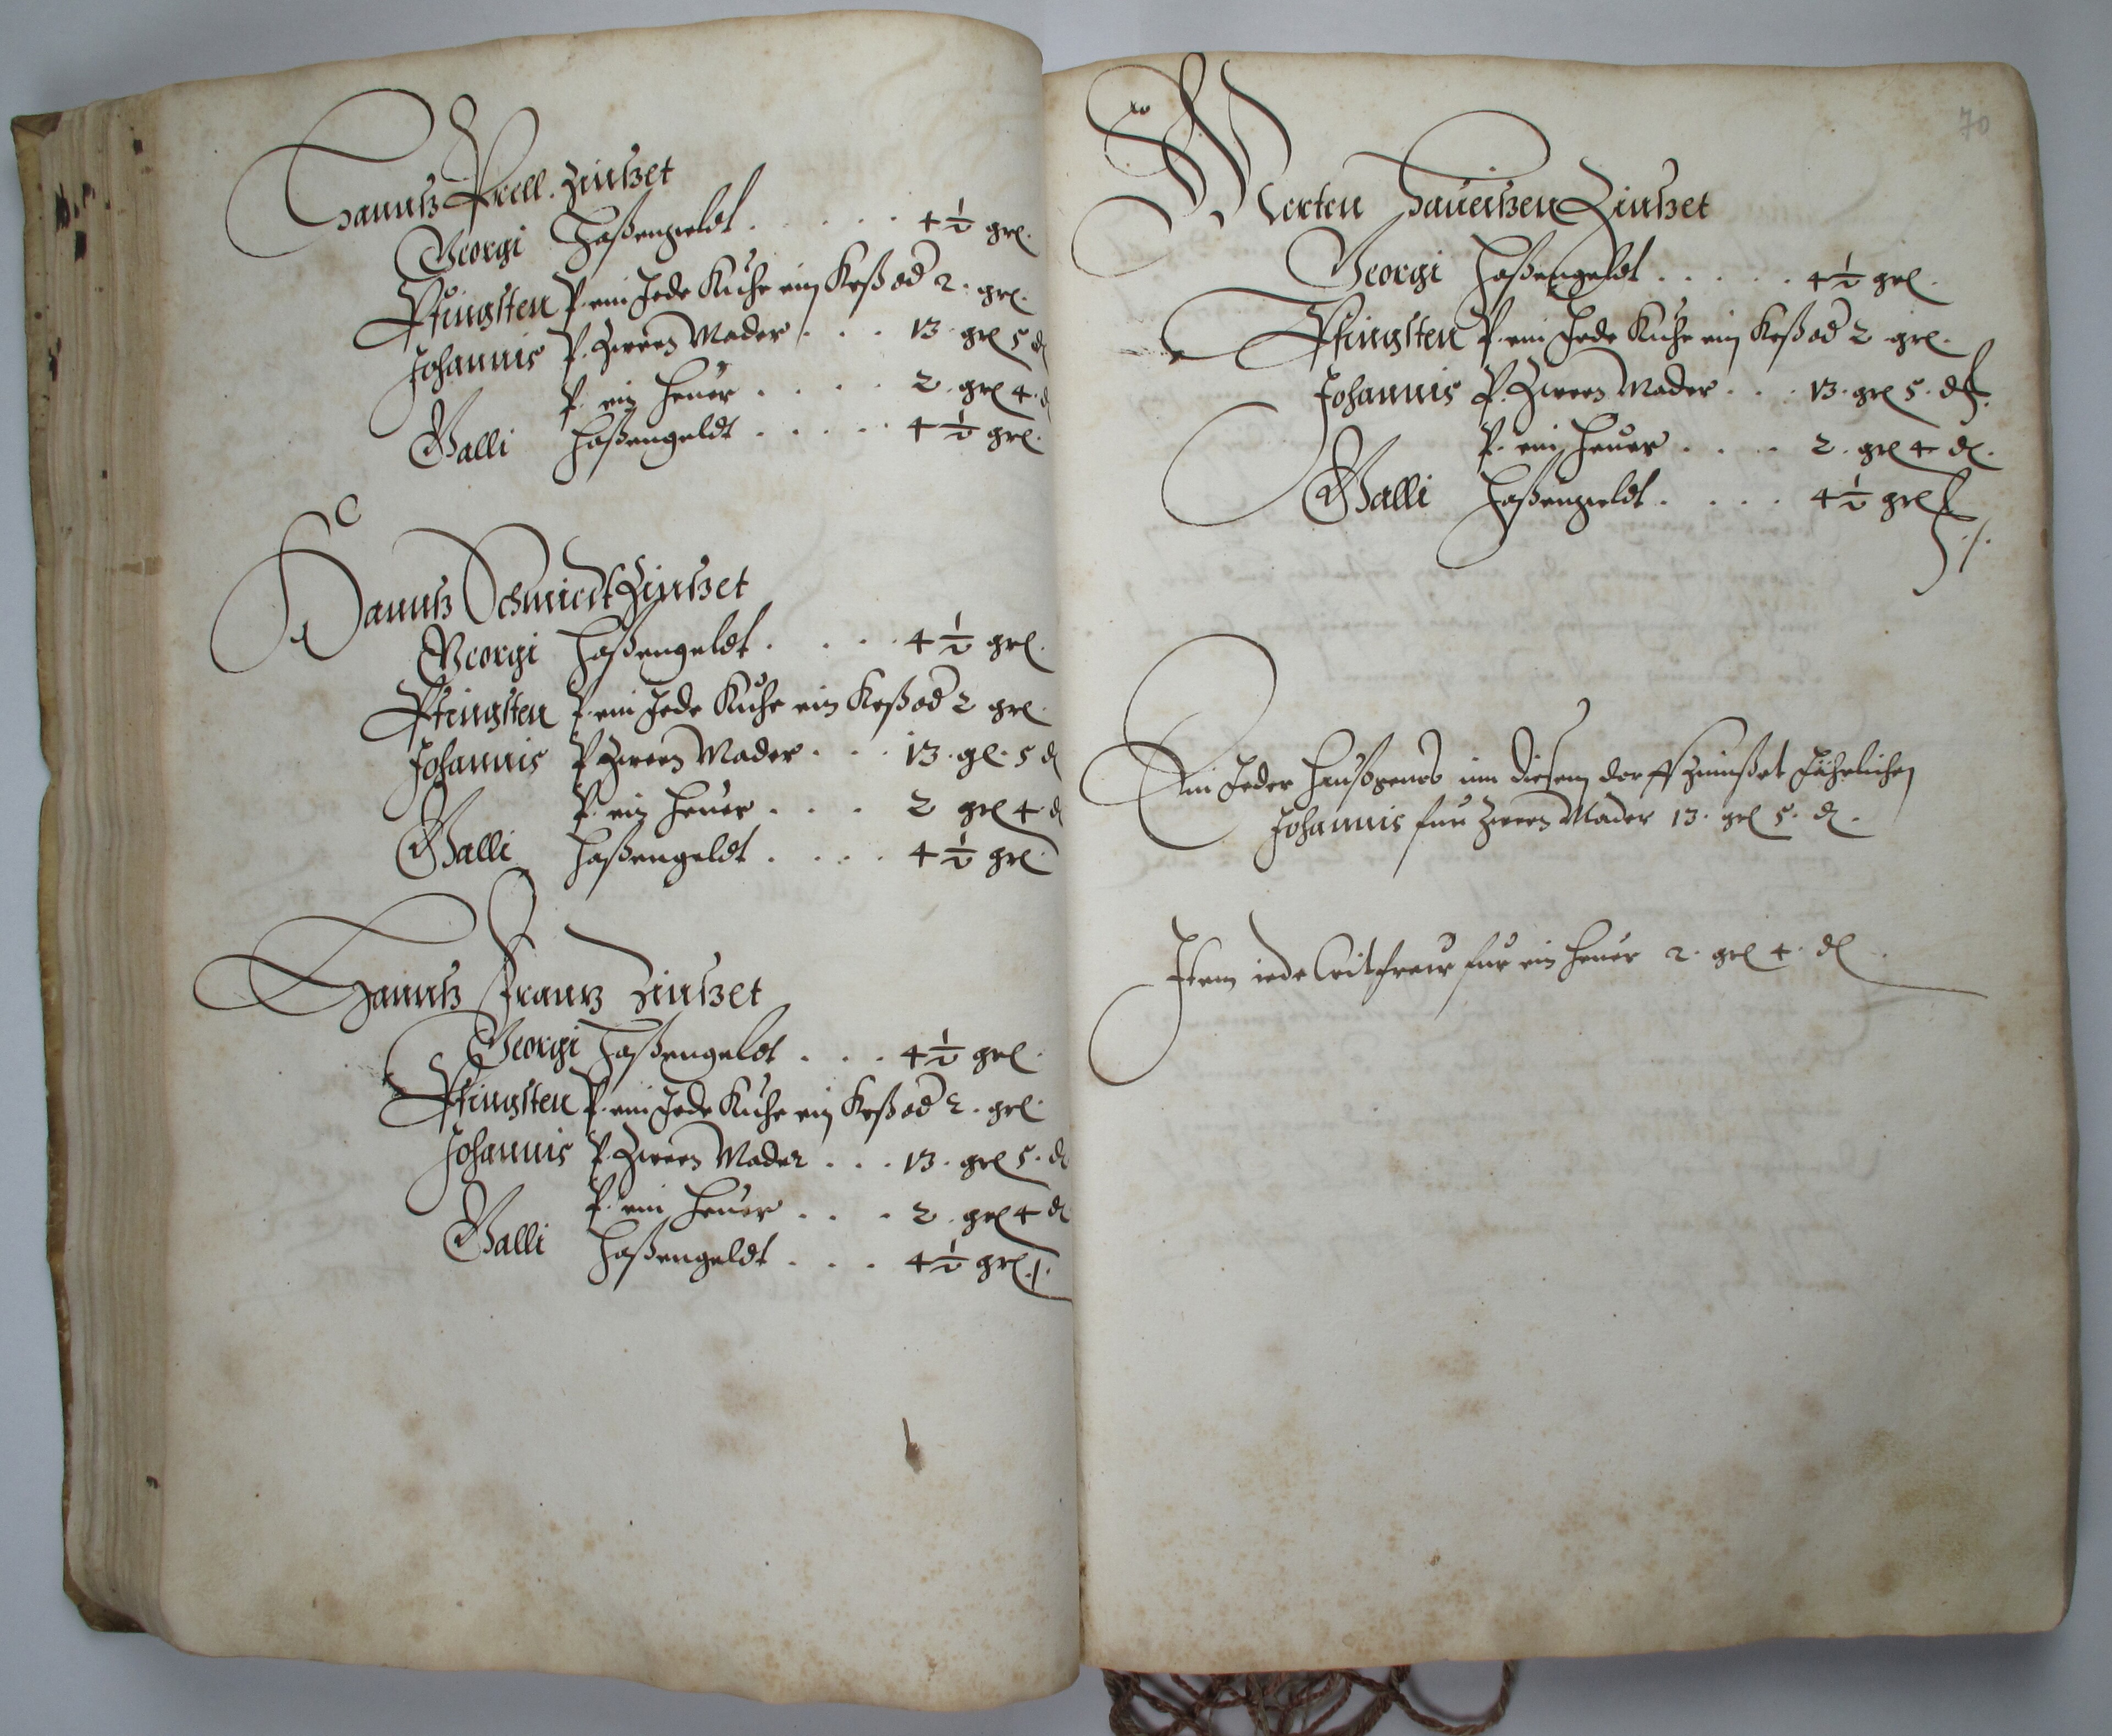 Hannß Krell. Zinßet
Georgi Haßengeldt . . . . . 4 1/2 grl.
Pfingsten P. ein Jede Kuhe ein Keß od 2. grl.
Johannis P. Zween Mader . . . 13. grl 5 d
P. ein Heuer . . . . 2. grl 4. d
Galli Haßengeldt . . . . . 4 1/2 grl.
Hannß Schmidt Zinßet
Georgi Haßengeldt . . . . 4 1/2 grl.
Pfingsten P. ein Jede Kuhe ein Keß od 2 grl.
Johannis P. Zween Mader . . . 13. gl. 5 d
P. ein Heuer . . . . 2 grl 4 d
Galli Haßengeldt . . . . 4 1/2 grl.
Hannß Frantz Zinßet
Georgi Haßengeldt . . . 4 1/2 grl.
Pfingsten P. ein Jede Kuhe ein Keß od 2. grl.
Johannis P. Zween Mader . . . 13. grl 5. d
P. ein Heuer . . . 2. grl 4 d
Galli Haßengeldt . . . 4 1/2 grl.
70
Merten Zinßet
Georgi Haßengeldt . . . . . 4 1/2 grl.
Pfingsten P. ein Jede Kuhe ein Keß od 2 grl.
Johannis P. Zween Mader . . . 13. grl 5. d.
P. ein Heuer . . . . 2. grl 4 d.
Galli Haßengeldt . . . . 4 1/2 grl
Ein Jeder Haußgenos inn diesem dorff Zinnßet Jährlichen
Johannis fur Zween Mader 13. grl 5. d.
Item iede fur ein Heuer 2. grl 4. d.